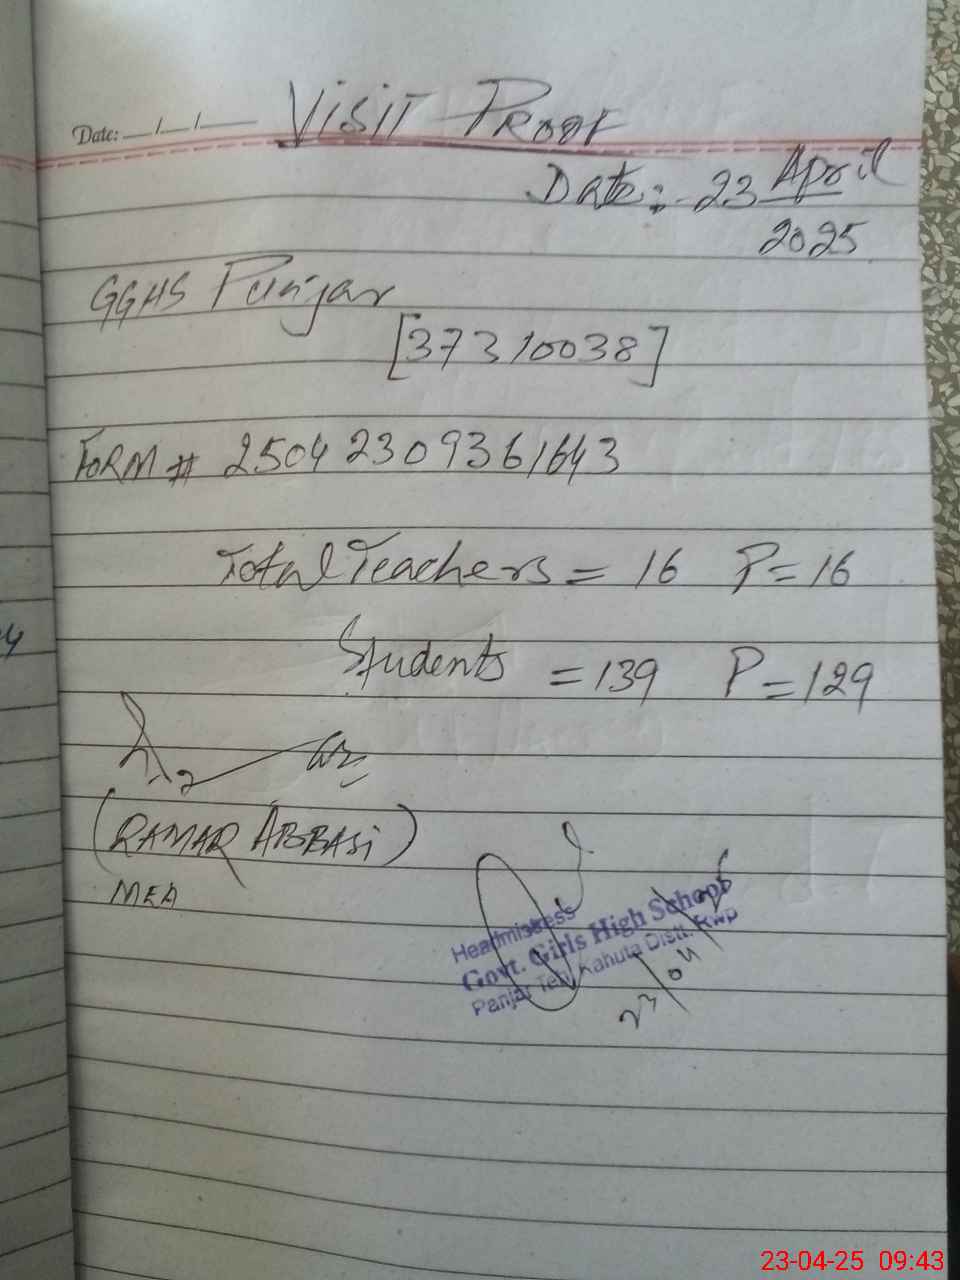 Date: __/__/____
VISIT PROOF
Date:- 23 April
2025
GGHS Panjar
[37310038]
FORM # 25042309361643
Total Teachers = 16 P = 16
Students = 139 P = 129
(QAMAR ABBASI)
MEA
Headmistress
Govt. Girls High School
Panjar Teh. Kahuta Distt. Rwp
23-04-25 09:43